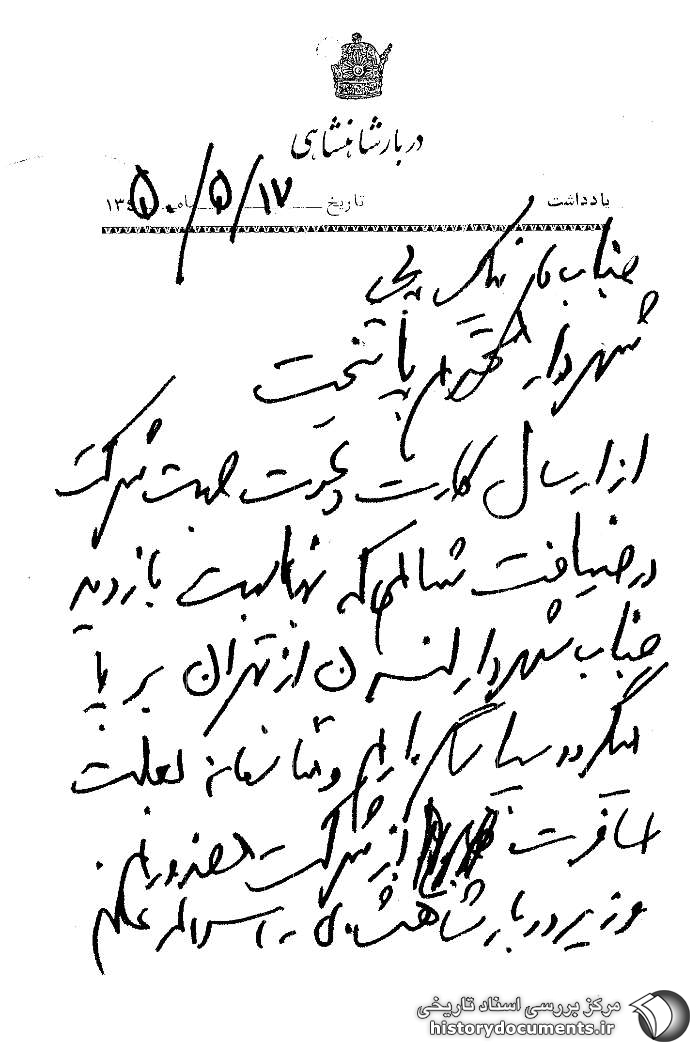 دربار شاهنشاهی
یادداشت تاریخ ۱۷/۵/۵۰ ماه ۱۳۴
جناب آقای نیک پی
شهردار محترم پایتخت
از ارسال کارت دعوت جهت شرکت
در ضیافت شامی که بمناسبت بازدید
جناب شهردار لندن از تهران بر پا
میگردد سپاسگزارم و متأسفانه بعلت
مسافرت از شرکت معذورم.
وزیر دربار شاهنشاهی - اسدالله علم
مرکز بررسی اسناد تاریخی
historydocuments.ir